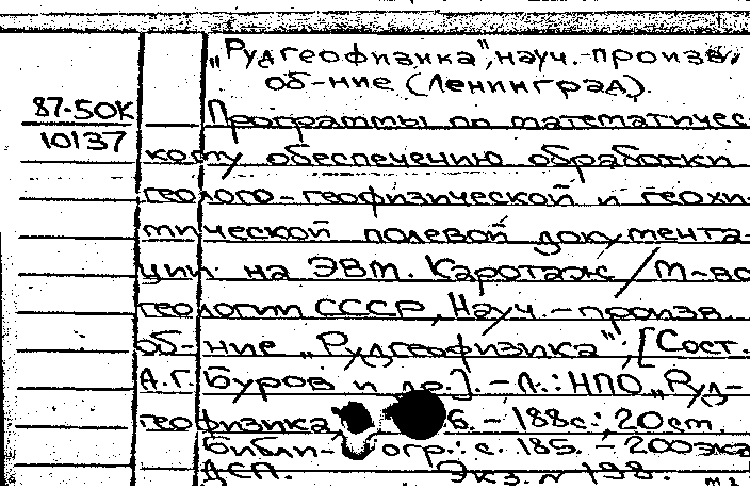 „Рудгеофизика", науч.-произв.
об-ние (Ленинград).
87-50К
10137
Программы по математичес-
кому обеспечению обработки
геолого-геофизической и геохи-
мической полевой документа-
ции на ЭВМ. Каротаж / М-во
геологии СССР, Науч.-произв.
об-ние „Рудгеофизика"; [Сост.
А.Г. Буров и др.]. - Л.: НПО „Руд-
геофизика 6. - 188с.; 20см.
Библи- огр.: с. 185. - 200экз
ДСП. Экз. N 198.